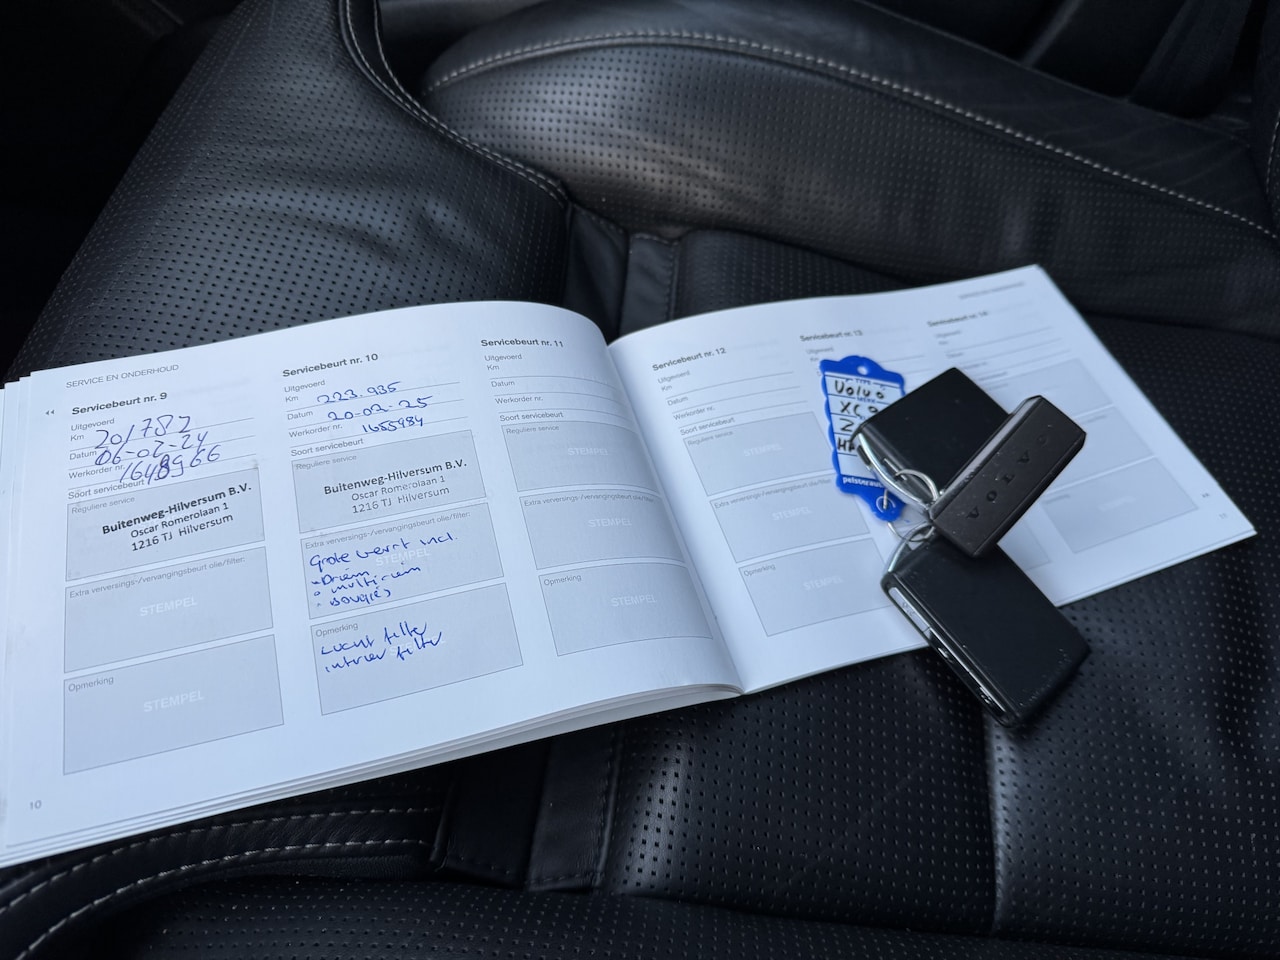 SERVICE EN ONDERHOUD
Servicebeurt nr. 9
Uitgevoerd
Km 201782
Datum 06-02-24
Werkorder nr. 1648966
Soort servicebeurt
Reguliere service
Buitenweg-Hilversum B.V.
Oscar Romerolaan 1
1216 TJ Hilversum
Extra verversings-/vervangingsbeurt olie/filter:
STEMPEL
Opmerking
STEMPEL
10
Servicebeurt nr. 10
Uitgevoerd
Km 223.935
Datum 20-02-25
Werkorder nr. 1655984
Soort servicebeurt
Reguliere service
Buitenweg-Hilversum B.V.
Oscar Romerolaan 1
1216 TJ Hilversum
Extra verversings-/vervangingsbeurt olie/filter:
STEMPEL
Grote
multiriem
Bougies
Opmerking
Lucht filter
interieur filter
Servicebeurt nr. 11
Uitgevoerd
Km
Datum
Werkorder nr.
Soort servicebeurt
Reguliere service
STEMPEL
Extra verversings-/vervangingsbeurt olie/filter:
STEMPEL
Opmerking
STEMPEL
SERVICE EN ONDERHOUD
Servicebeurt nr. 12
Uitgevoerd
Km
Datum
Werkorder nr.
Soort servicebeurt
Reguliere service
STEMPEL
Extra verversings-/vervangingsbeurt olie/filter:
STEMPEL
Opmerking
STEMPEL
Servicebeurt nr. 13
Uitgevoerd
Servicebeurt nr. 14
Uitgevoerd
Km
Datum
11
TYPE
Volvo
MERK
XC
VOLVO